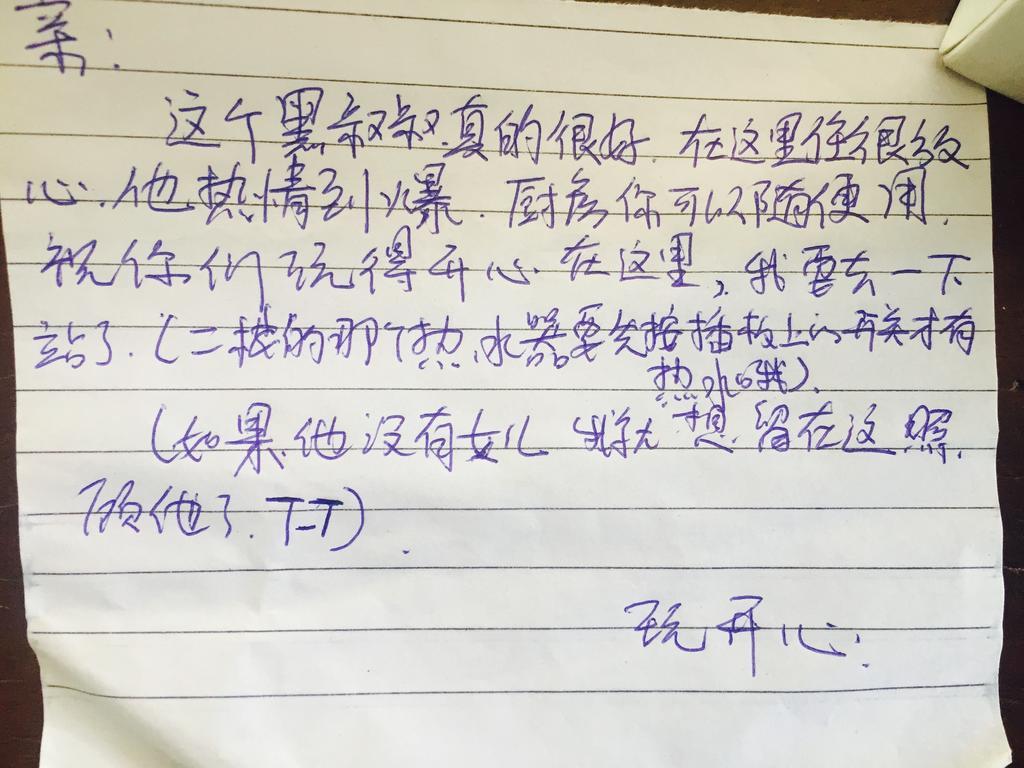 亲:
这个黑叔叔真的很好.在这里住很放
心.他热情到爆.厨房你可以随便用.
祝你们玩得开心在这里,我要去下一
站了.(二楼的那个热水器要先按插板上的开关才有
热水哦).
(如果他没有女儿我就想留在这照
顾他了.T-T).
玩开心: